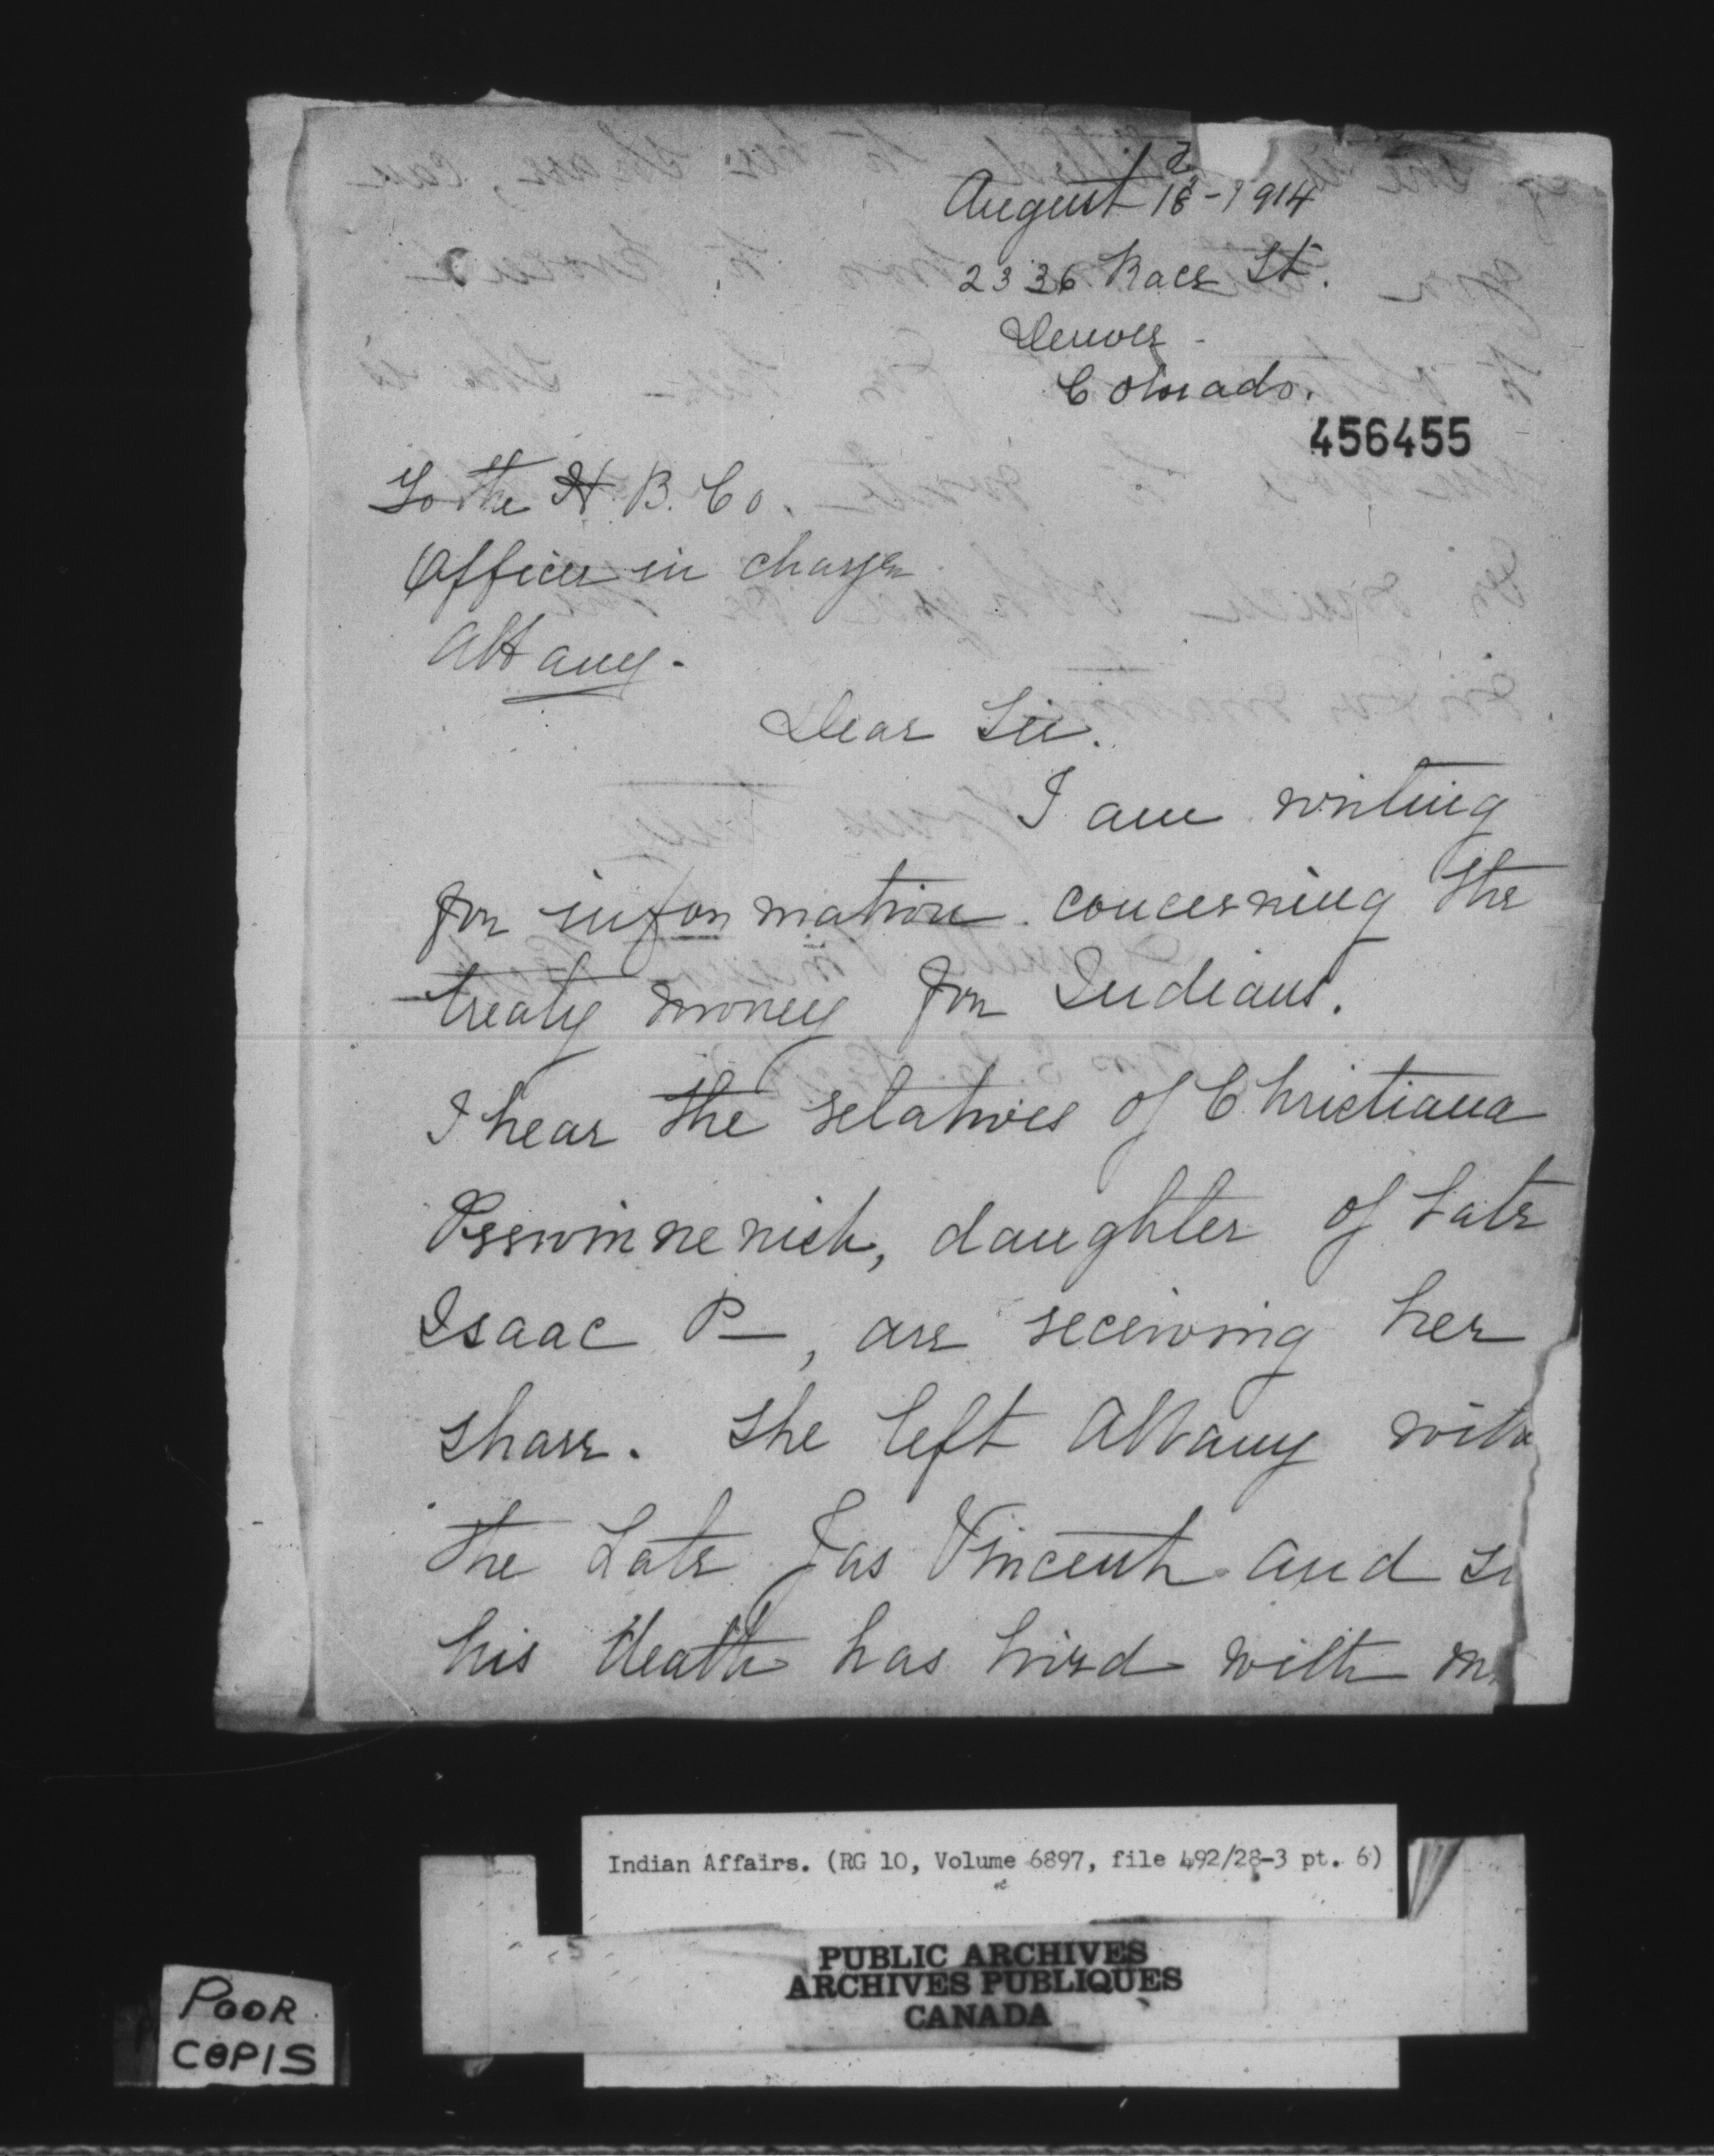 August 18-1914
2336 Race St.
Denver -
Colorado.
456455
To the H. B. Co.
Officer in charge
Albany.
Dear Sir.
I am writing
for information concerning the
treaty money for Indians.
I hear the relatives of Christiana
daughter of Late
Isaac P—, are receiving her
share. She left Albany with
the Late Jas Vincent and si
his death has lived with m
Indian Affairs. (RG 10, Volume 6897, file 492/28-3 pt. 6)
PUBLIC ARCHIVES
ARCHIVES PUBLIQUES
CANADA
POOR
COPIS